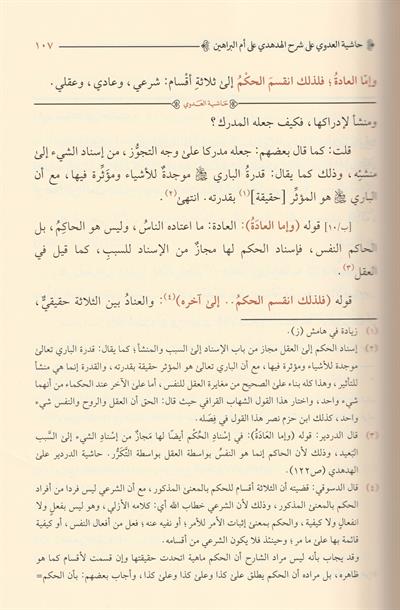 حاشية العدوي على شرح الهدهدي على أم البراهين
١٠٧
وإمّا العادةُ؛ فلذلك انقسمَ الحُكْمُ إلىٰ ثلاثةِ أقْسامٍ: شرعي، وعادي، وعقلي.
حَاشية العَدوي
ومنشأ لإدراكها، فكيف جعله المدرك؟
قلت: كما قال بعضهم: جعله مدركا علىٰ وجه التجوُّز، من إسناد الشيء إلىٰ
منشئِه، وذلك كما يقال: قدرةُ الباري ﷻ موجدةٌ للأشياء ومؤثِّرة فيها، مع أن
الباري ﷻ هو المؤثِّر [حقيقة](١) بقدرته. انتهىٰ(٢).
[١٠/ب] قوله (وإما العادَةُ): العادة: ما اعتاده الناسُ، وليس هو الحاكِمُ، بل
الحاكم النفس، فإسناد الحكم لها مجازٌ من الإسناد للسببِ، كما قيل في
العقل(٣).
قوله (فلذلك انقسم الحكمُ.. إلىٰ آخره)(٤): والعنادُ بين الثلاثة حقيقيٌّ،
(١) زيادة في هامش (ز).
(٢) إسناد الحكم إلى العقل مجاز من باب الإسناد إلى السبب والمنشأ؛ كما يقال: قدرة الباري تعالىٰ
موجدة للأشياء ومؤثرة فيها، مع أن الباري تعالىٰ هو المؤثر حقيقة بقدرته، والقدرة إنما هي منشأ
للتأثير، وهذا كله بناء على الصحيح من مغايرة العقل للنفس، أما علىٰ الآخر عند الحكماء من أنهما
شيء واحد، واختار هذا القول الشهاب القرافي حيث قال: الحق أن العقل والروح والنفس شيء
واحد، كذلك ابن حزم نصر هذا القول في فِصَله.
(٣) قال الدردير: قوله (وإما العَادَةُ): في إسْنادِ الحُكْمِ أيضًا لها مَجَازٌ من إسْنادِ الشيءِ إلى السَّبب
البَعيد، وذلك لأن الحاكم إنما هو النفسُ بواسطة العقل بواسطة التَّكَرُّر. حاشية الدردير على
الهدهدي (ص١٢٢).
(٤) قال الدسوقي: قضيته أن الثلاثة أقسام للحكم بالمعنى المذكور، مع أن الشرعي ليس فردا من أفراد
الحكم بالمعنى المذكور، وذلك لأن الشرعي خطاب الله أي: كلامه الأزلي، وهو ليس بفعل ولا
انفعال ولا كيفية، والحكم بمعنىٰ إثبات الأمر للأمر؛ أو نفيه عنه؛ فعل من أفعال النفس، أو كيفية
قائمة بها علىٰ ما مر؛ وحينئذ فلا يكون الشرعي من أقسامه.
وقد يجاب بأنه ليس مراد الشارح أن الحكم ماهية اتحدت حقيقتها وإن قسمت لأقسام كما هو
ظاهره، بل مراده أن الحكم يطلق علىٰ كذا وعلىٰ كذا وعلىٰ كذا، وأجاب بعضهم: بأن الحكم=